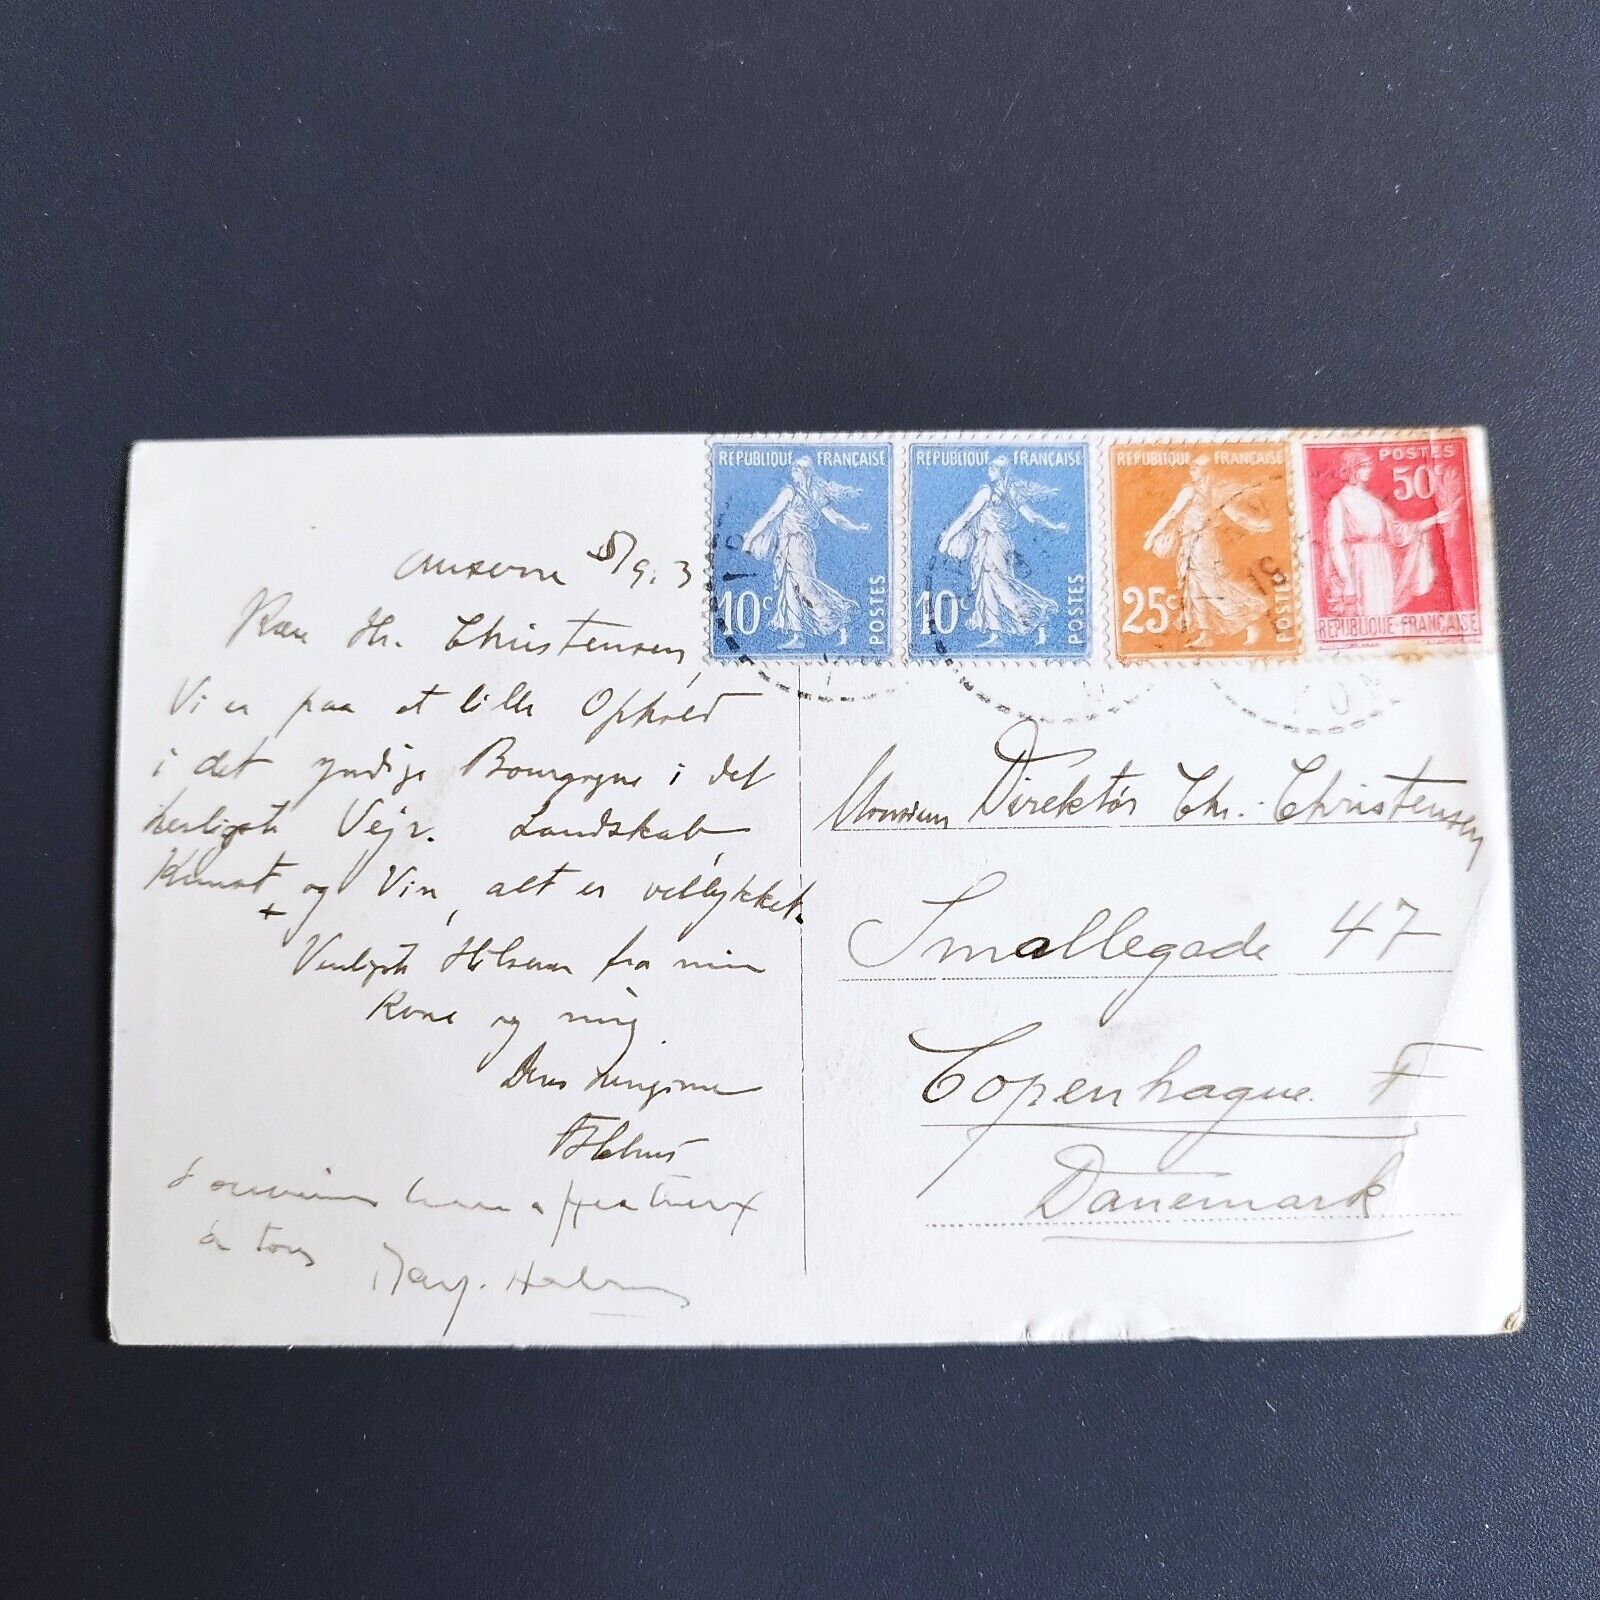 Auxerre 8/9.3
Kære Hr. Christensen,
Vi er paa et lille Ophold
i det yndige Bourgogne i det
herligste Vejr. Landskab,
Kunst og Vin, alt er vellykket.
Venligste Hilsener fra min
Kone og mig.
Deres hengivne
à tous
REPUBLIQUE FRANÇAISE
10c POSTES
REPUBLIQUE FRANÇAISE
10c POSTES
REPUBLIQUE FRANÇAISE
25c POSTES
POSTES
50c
REPUBLIQUE FRANÇAISE
Monsieur Direktør Chr. Christensen
Smallegade 47
Copenhague F
Danemark